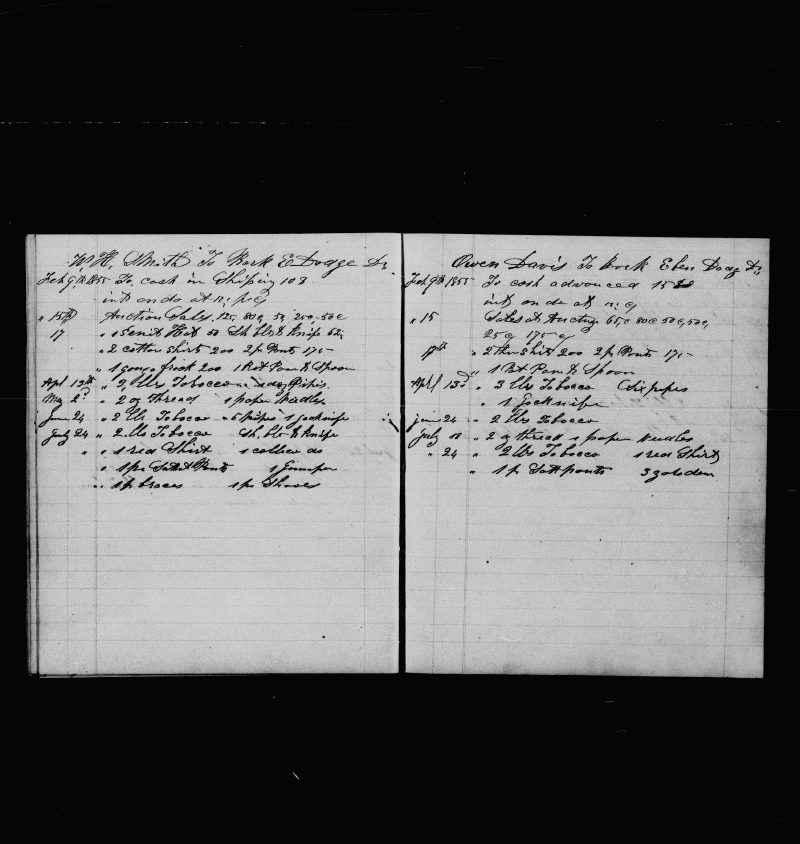 W. H. Smith To Bark E Dodge Dr,
Feb 9th 1855 To cash in Shiping 108
int on do at
" 15th Auction Sales, 125, 80c, 50, 250, 50c
17 " 1 Hat 50 Sh blt & Knife 62
" 2 cotton Shirts 200 2 pr Pants 175
" 1 frock 200 1 Pot Pan & Spoon
Apl 13th " 2 lbs Tobacco " 1 doz Pipes
May 2d " 2 q thread 1 paper Nedles
June 24 " 2 lbs Tobacco " 6 pipes 1 jacknife
July 24 " 2 lbs Tobacco Sh. blt & Knife
" " 1 red Shirt 1 do
" 1 pr Satt Pants 1 Jumper
" " 1 pr braces 1 pr Shoes
Owen Davis To bark Eben Dodge Dr,
Feb 9th 1855 To cash advanced
int on do at
" 15 Sales at Auction 65c, 80c 50c, 50c,
25c 175 c
17th " 2 Shirts 200 2 pr Pants 175
" 1 Pot Pan & Spoon
April 13d " 3 lbs Tobacco pipes
" 1 Jacknife
june 24 " 2 lbs Tobacco
july 18 " 2 q thread 1 paper Nedles
" 24 " 2 lbs Tobacco 1 red Shirt
" 1 pr Satt pants